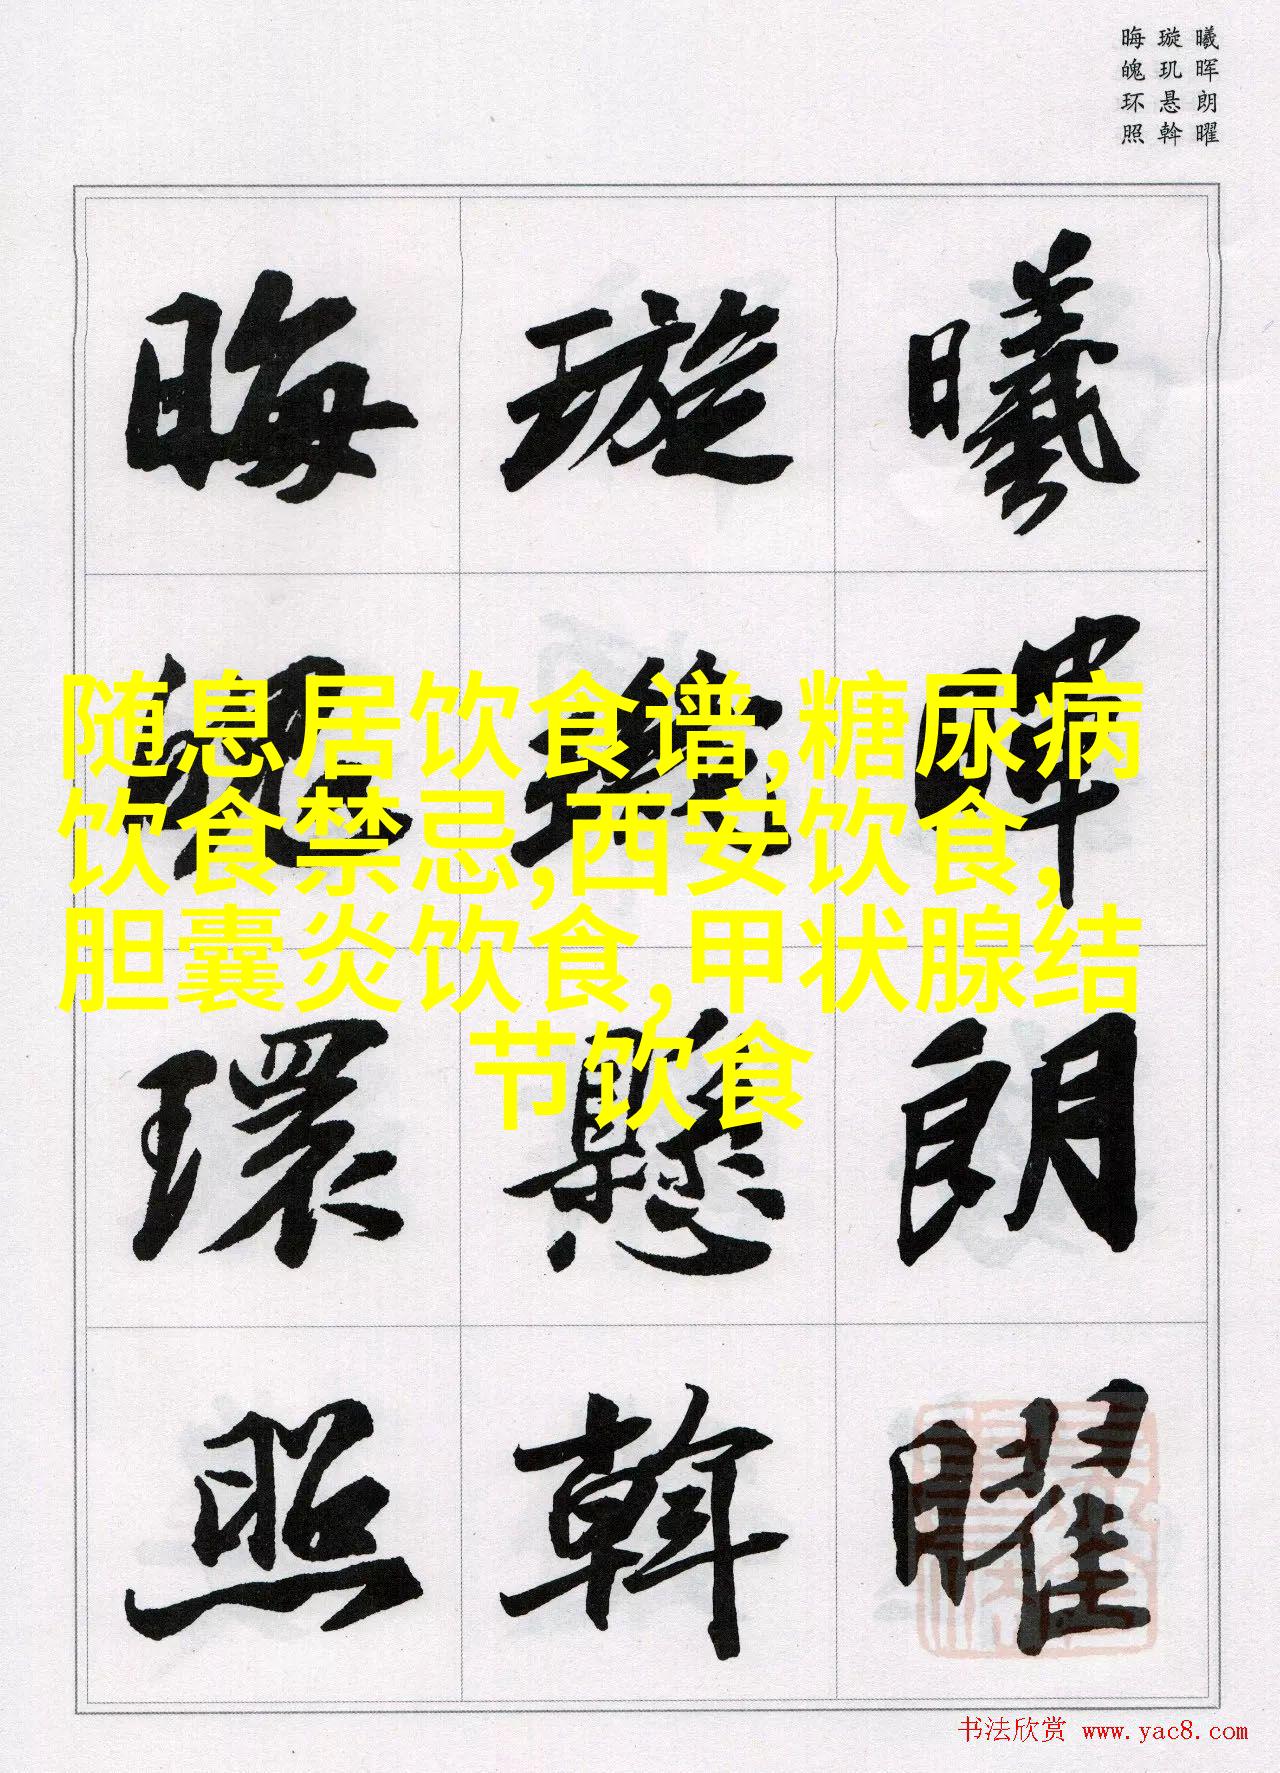 曦晖朗曜
璇玑悬斡
晦魄环照
曦暉朗曜
璇璣懸斡
晦魄環照
随息居饮食谱,糖尿病
饮食禁忌,西安饮食,
胆囊炎饮食,甲状腺结
节饮食
书法欣赏 www.yac8.com